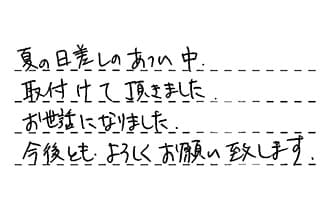 夏の日差しのあつい中.
取付けて頂きました.
お世話になりました.
今後とも よろしくお願い致します.